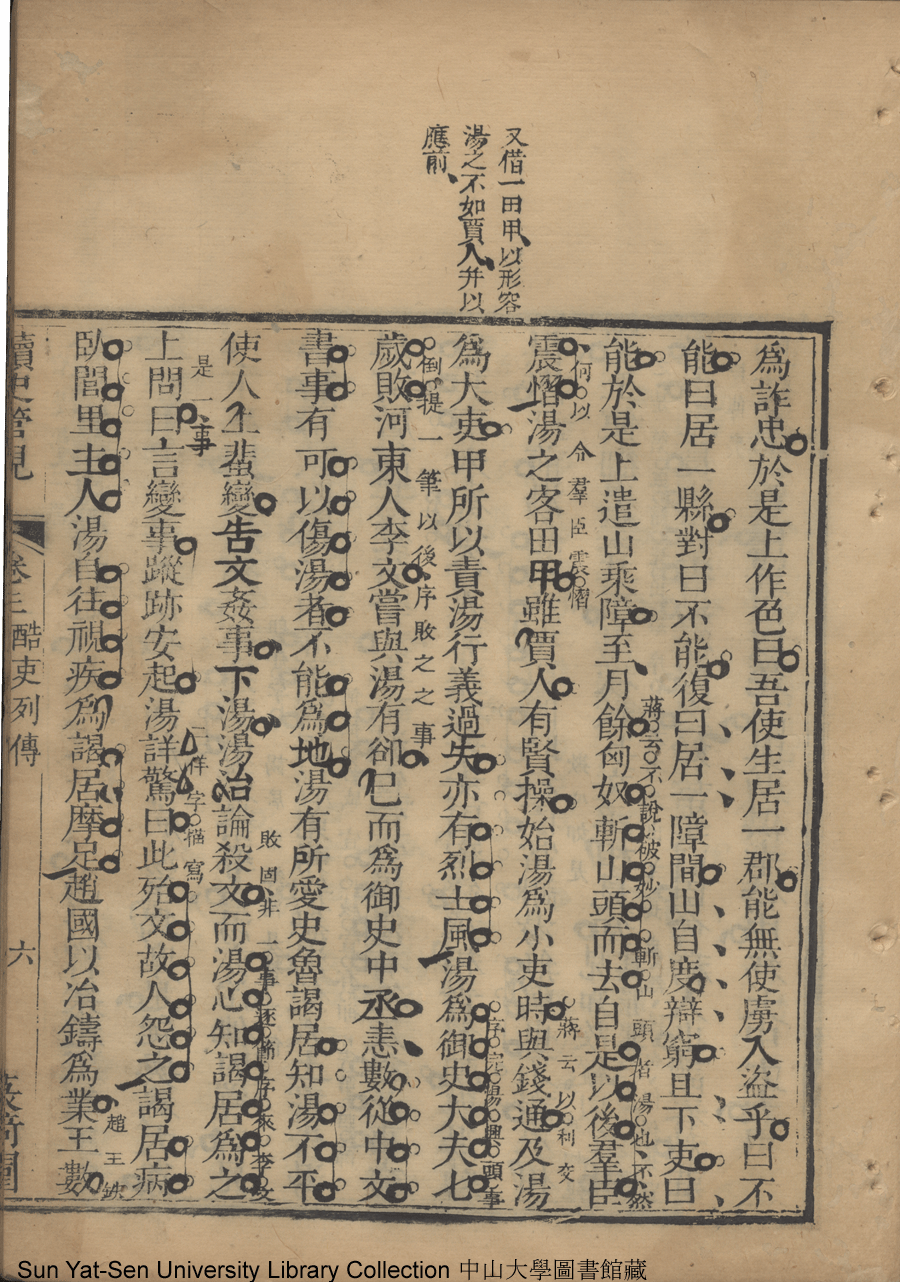 又借一田甲以形容
湯之不如賈人并以
應前
為詐忠於是上作色曰吾使生居一郡能無使虜入盜乎曰不
能曰居一縣對曰不能復曰居一障間山自度辯窮且下吏曰
能於是上遣山乘障至月餘匈奴斬山頭而去自是以後羣臣
蔣云不說破妙斬山頭者湯也不然
何以令羣臣震慴
震慴湯之客田甲雖賈人有賢操始湯為小吏時與錢通及湯
蔣云以利交
為大吏甲所以責湯行義過失亦有烈士風湯為御史大夫七
序完湯興頭事
倒提一筆以後序敗之之事
歲敗河東人李文嘗與湯有卻已而為御史中丞恚數從中文
書事有可以傷湯者不能為地湯有所愛史魯謁居知湯不平
使人上蜚變告文姦事下湯湯治論殺文而湯心知謁居為之
敗固非一事逐節序來李文
是一事
上問曰言變事蹤跡安起湯詳驚曰此殆文故人怨之謁居病
二佯字描寫
臥閭里主人湯自往視疾為謁居摩足趙國以冶鑄為業王數
趙王
讀史管見
卷三 酷吏列傳
六
Sun Yat-Sen University Library Collection 中山大學圖書館藏